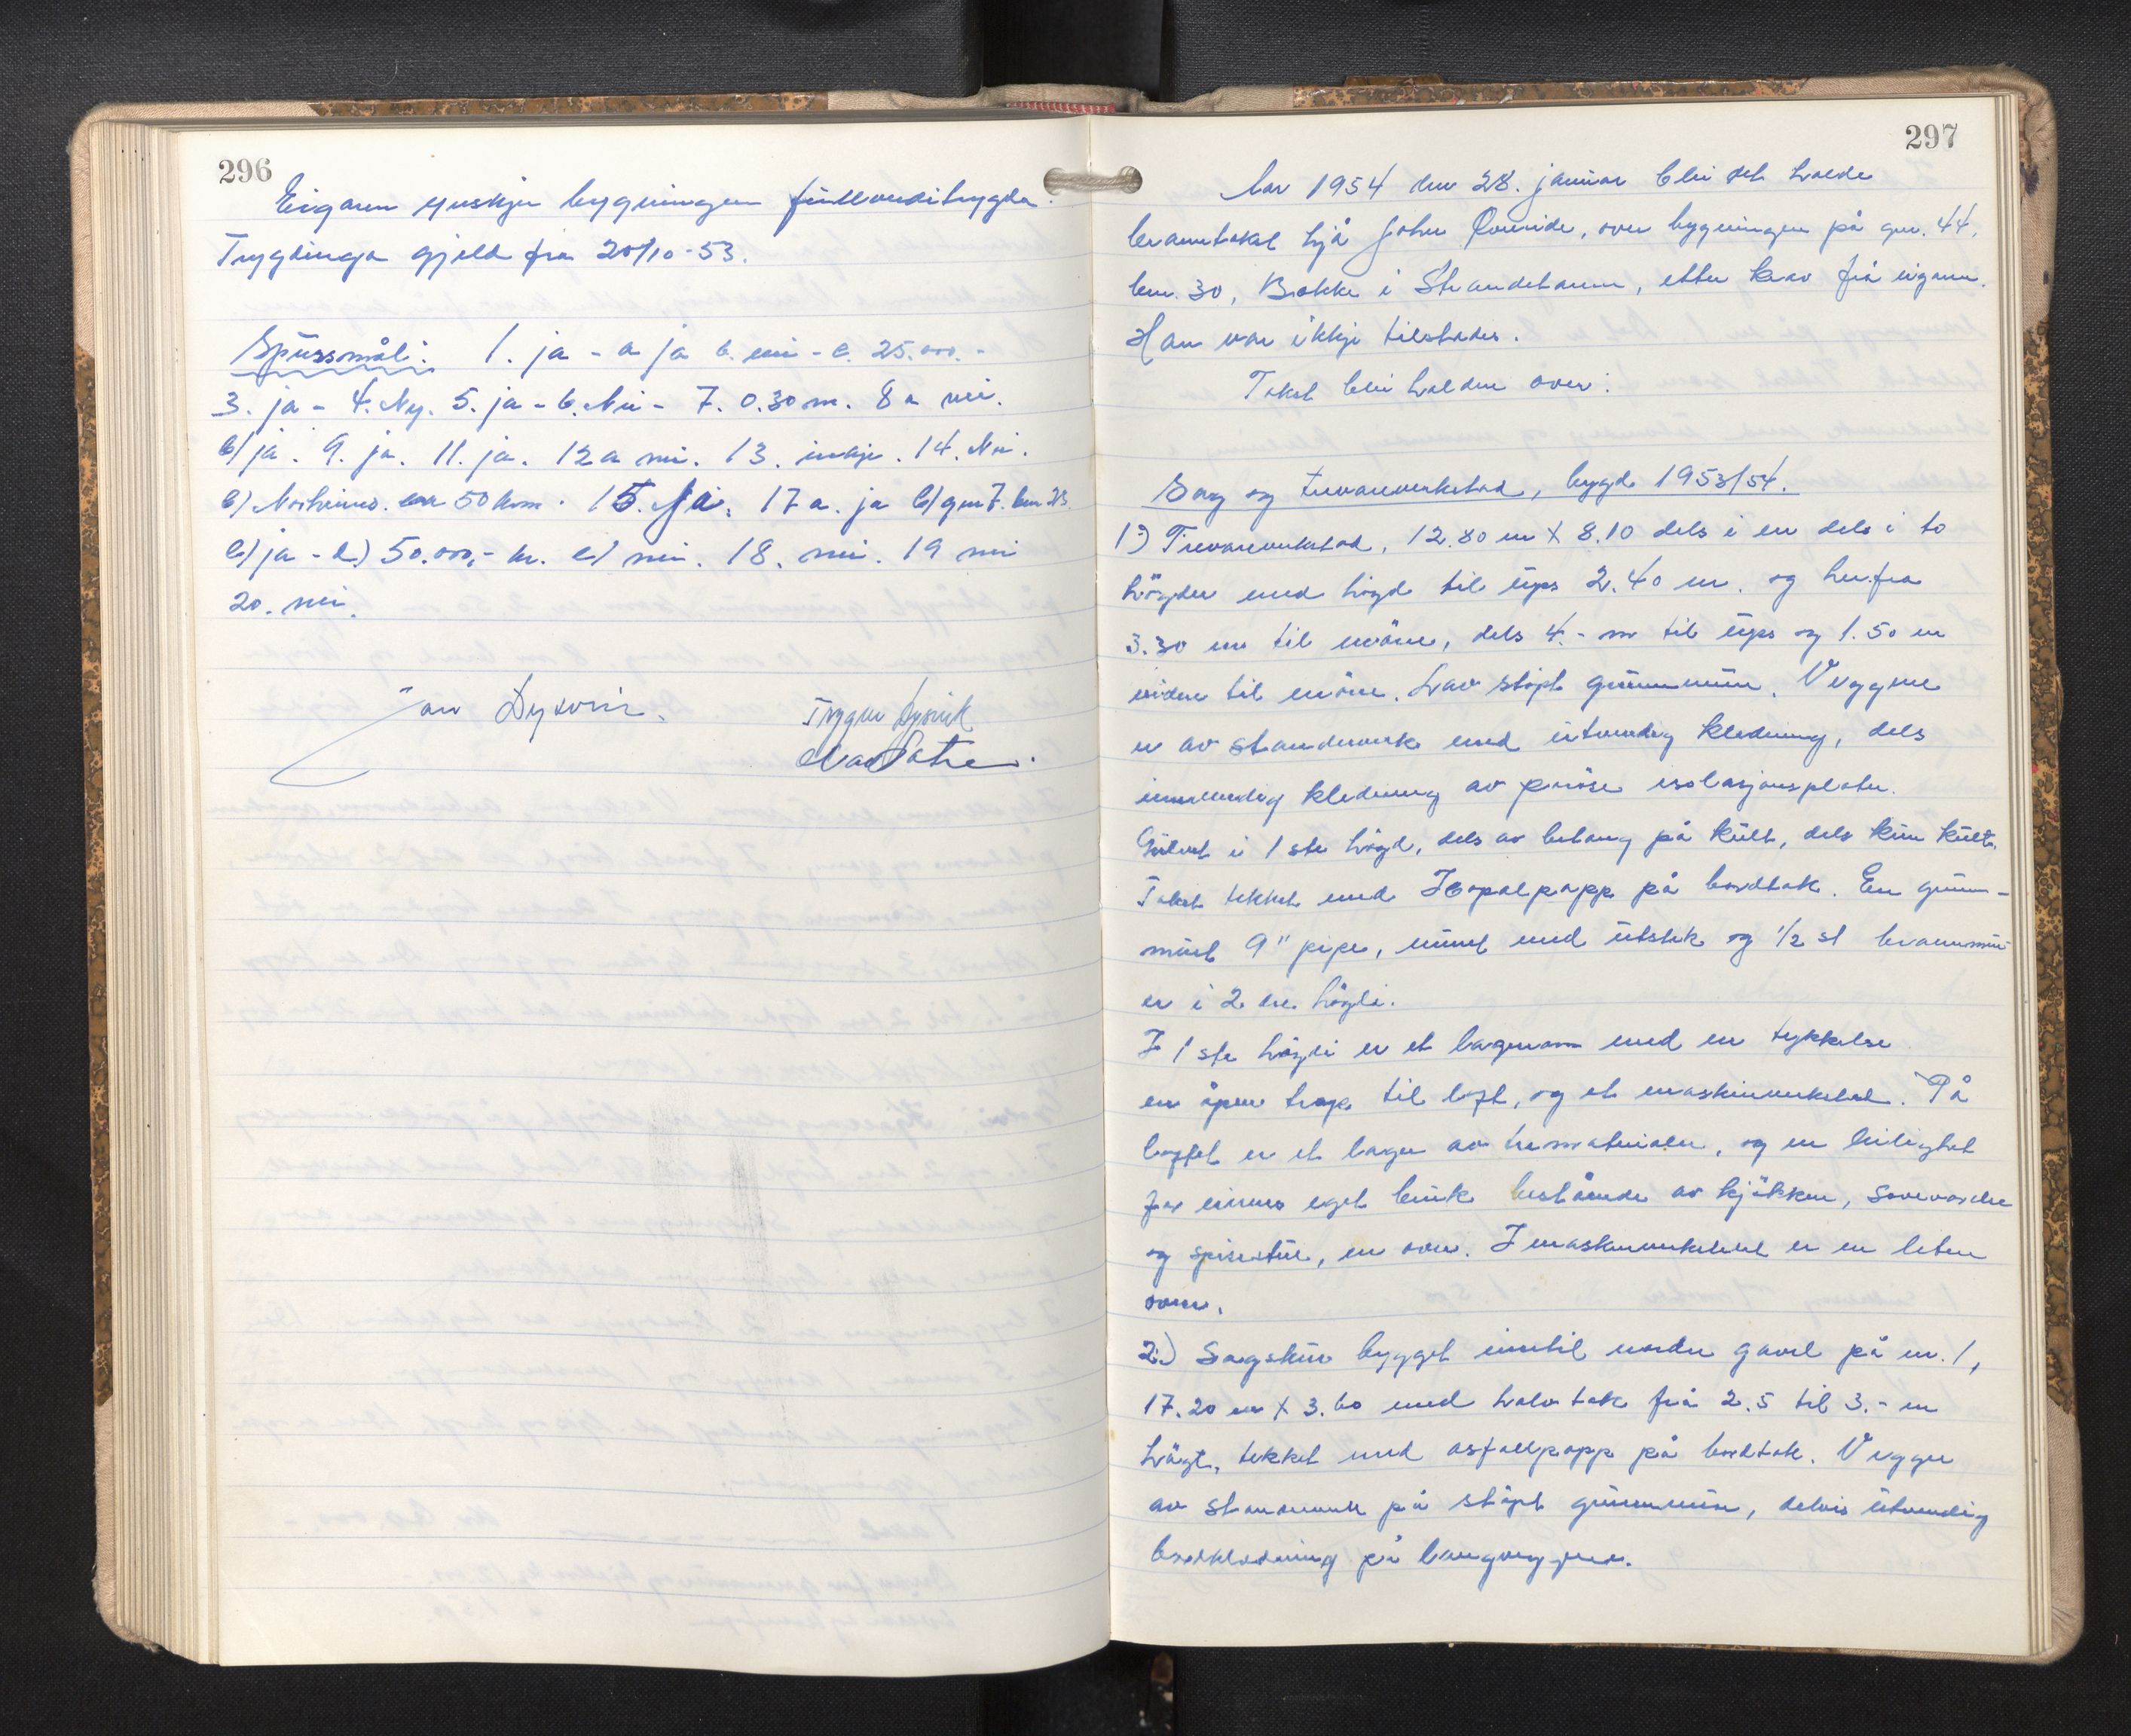 296
Eigaren ynskjer bygningen fullverditrygda.
Trygdinga gjeld fra 20/10-53.
Spursmål: 1. ja - a ja b. nei - c. 25.000.-
3. ja - 4. Ny. 5. ja - 6. Nei - 7. 0.30 m. 8 a nei.
b/ ja. 9. ja. 11. ja. 12 a nei. 13. inkje. 14. Nei.
50 km. 15. Ja. 17 a. ja b/ gnr 7. bnr 23.
c/ ja - d.) 50.000,- kr. e/ nei. 18. nei. 19 nei
20. nei.
Jan Dysvik.
Trygve Dysvik

297
År 1954 den 28. januar blei det halde
branntakst hjå John Qvinnde, over bygningen på gnr. 44,
bnr. 30, Bakke i Strandebarm, etter krav frå eigaren.
Han var ikkje tilstades.
Takst blei halden over:
Sag og trevareverkstad, bygd 1953/54.
1.) Trevareverkstad, 12.80 m x 8.10 dels i en dels i to
högder med högd til ups 2.40 m. og herfra
3.30 m til möne, dels 4.- m til ups og 1.50 m
vidare til möne. Lav stöpt grunnmur. Veggene
er av standerverk med utvendig kledning, dels
innvendig kledning av porøse isolasjonsplater.
Gulvet i 1ste högd, dels av betong på kult, dels kun kult.
Taket tekket med Icopalpapp på bordtak. En grunn-
muret 9" pipe, muret med utstek og 1/2 st brannmur
er i 2. dre högdi.
I 1ste högdi er et lagerrom med en tykkelse
en åpen trapp til loft, og et maskinverksted. På
loftet er et lager av trematerialer, og en leilighet
for eierens eget bruk bestående av kjökken, soveværelse
og spisestue, en ovn. I maskinverkstedet er en liten
ovn.
2.) Sagskur bygget inntil nordre gavel på nr. 1,
17.20 m x 3.60 med halv tak frå 2.5 til 3.- m
högt, tekket med asfaltpapp på bordtak. Vegger
av standerverk på stöpt grunnmur, delvis utvendig
bordkledning på langveggene.